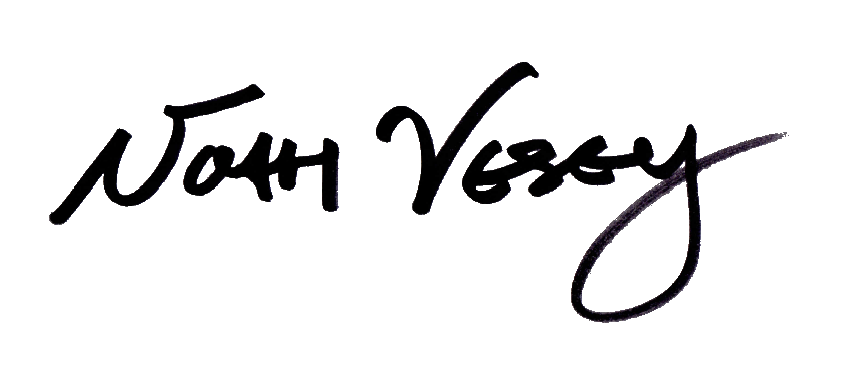 Noah Vesey